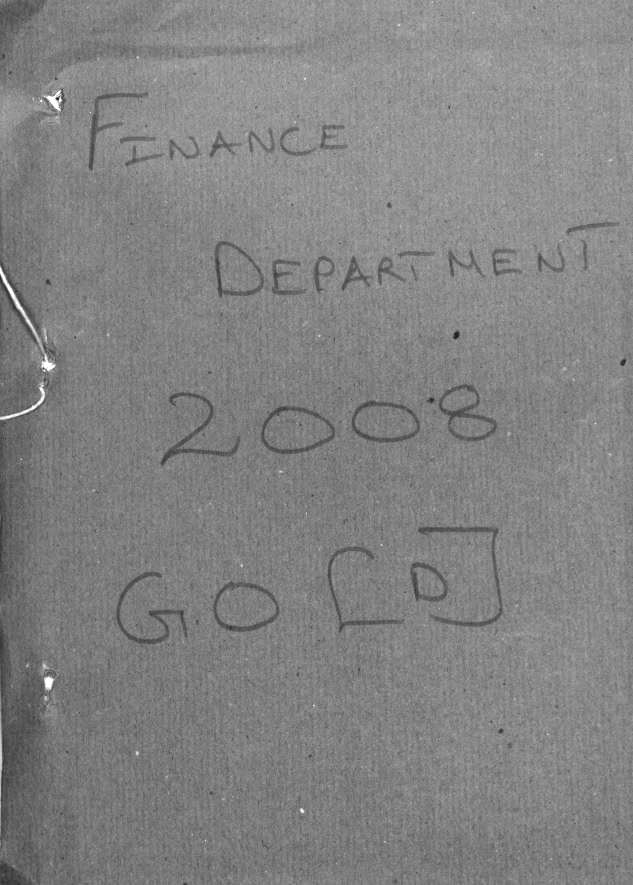 FINANCE
DEPARTMENT
2008
GO [D]